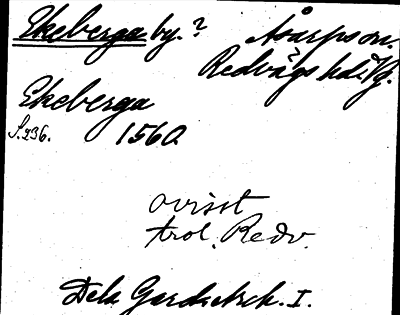 Ekeberga by.? Åsarps sn.
Redvägs hd. Vg.
Ekeberga
S. 236. 1560.
ovisst
trol. Redv.
Dela Gardietrsk. I.